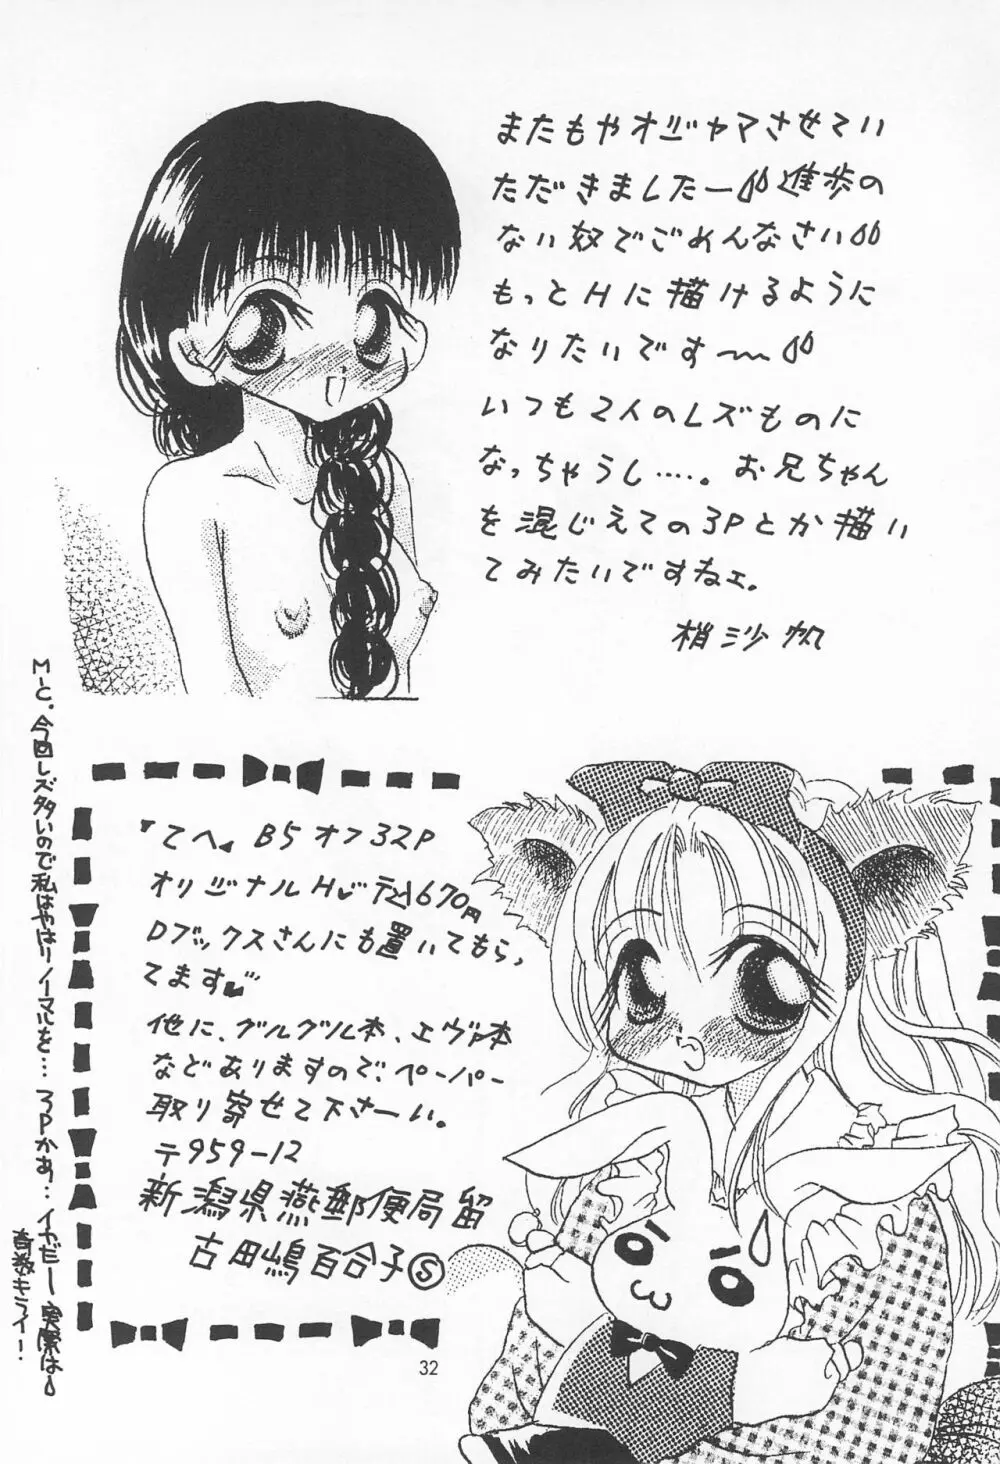 またもやオジャマさせてい
ただきましたー進歩の
ない奴でごめんなさい
もっとHに描けるように
なりたいです〜
いつも2人のレズものに
なっちゃうし……。お兄ちゃん
を混じえての3Pとか描い
てみたいですねェ。
梢沙帆
M-C。今回レズ多いので私はやはりノーマルを…3Pかあ…イヤだー実際は
奇数キライ!
てへ。B5オフ32P
オリジナルH 670円
Dブックスさんにも置いてもらっ
てます
他に、グルグル本、エヴァ本
などありますので、ペーパー
取り寄せて下さーい。
〒959-12
新潟県燕郵便局留
古田嶋百合子Ⓢ
32